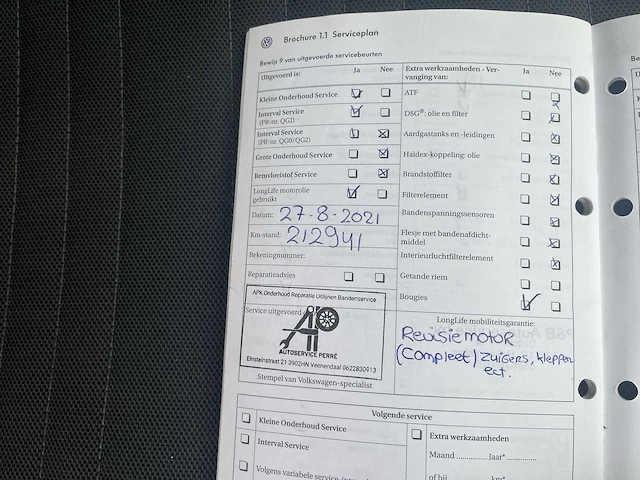 Brochure 1.1 Serviceplan
Bewijs 9 van uitgevoerde servicebeurten
Uitgevoerd is:
Ja Nee
Kleine Onderhoud Service
Interval Service
(PR-nr. QG1)
Interval Service
(PR-nr. QG0/QG2)
Grote Onderhoud Service
Remvloeistof Service
LongLife motorolie
gebruikt
Datum: 27-8-2021
Km-stand: 212941
Rekeningnummer:
Reparatieadvies
Service uitgevoerd
APK Onderhoud Reparatie Uitlijnen Bandenservice
AUTOSERVICE PERRÉ
Einsteinstraat 21 3902HN Veenendaal 0622830913
Stempel van Volkswagen-specialist
Extra werkzaamheden - Ver-
vanging van:
Ja Nee
ATF
DSG®: olie en filter
Aardgastanks en -leidingen
Haldex-koppeling: olie
Brandstoffilter
Filterelement
Bandenspanningssensoren
Flesje met bandenafdicht-
middel
Interieurluchtfilterelement
Getande riem
Bougies
LongLife mobiliteitsgarantie:
Revisie motor
(Compleet) zuigers, kleppen
ect.
Volgende service
Kleine Onderhoud Service
Interval Service
Volgens variabele service-
Extra werkzaamheden
Maand ............ Jaar* ............
of bij ............ km*